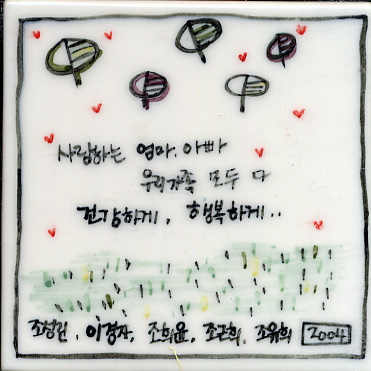 사랑하는 엄마, 아빠
우리가족 모두 다
건강하게, 행복하게..
조성린, 이경자, 조희윤, 조근희, 조유희 2004